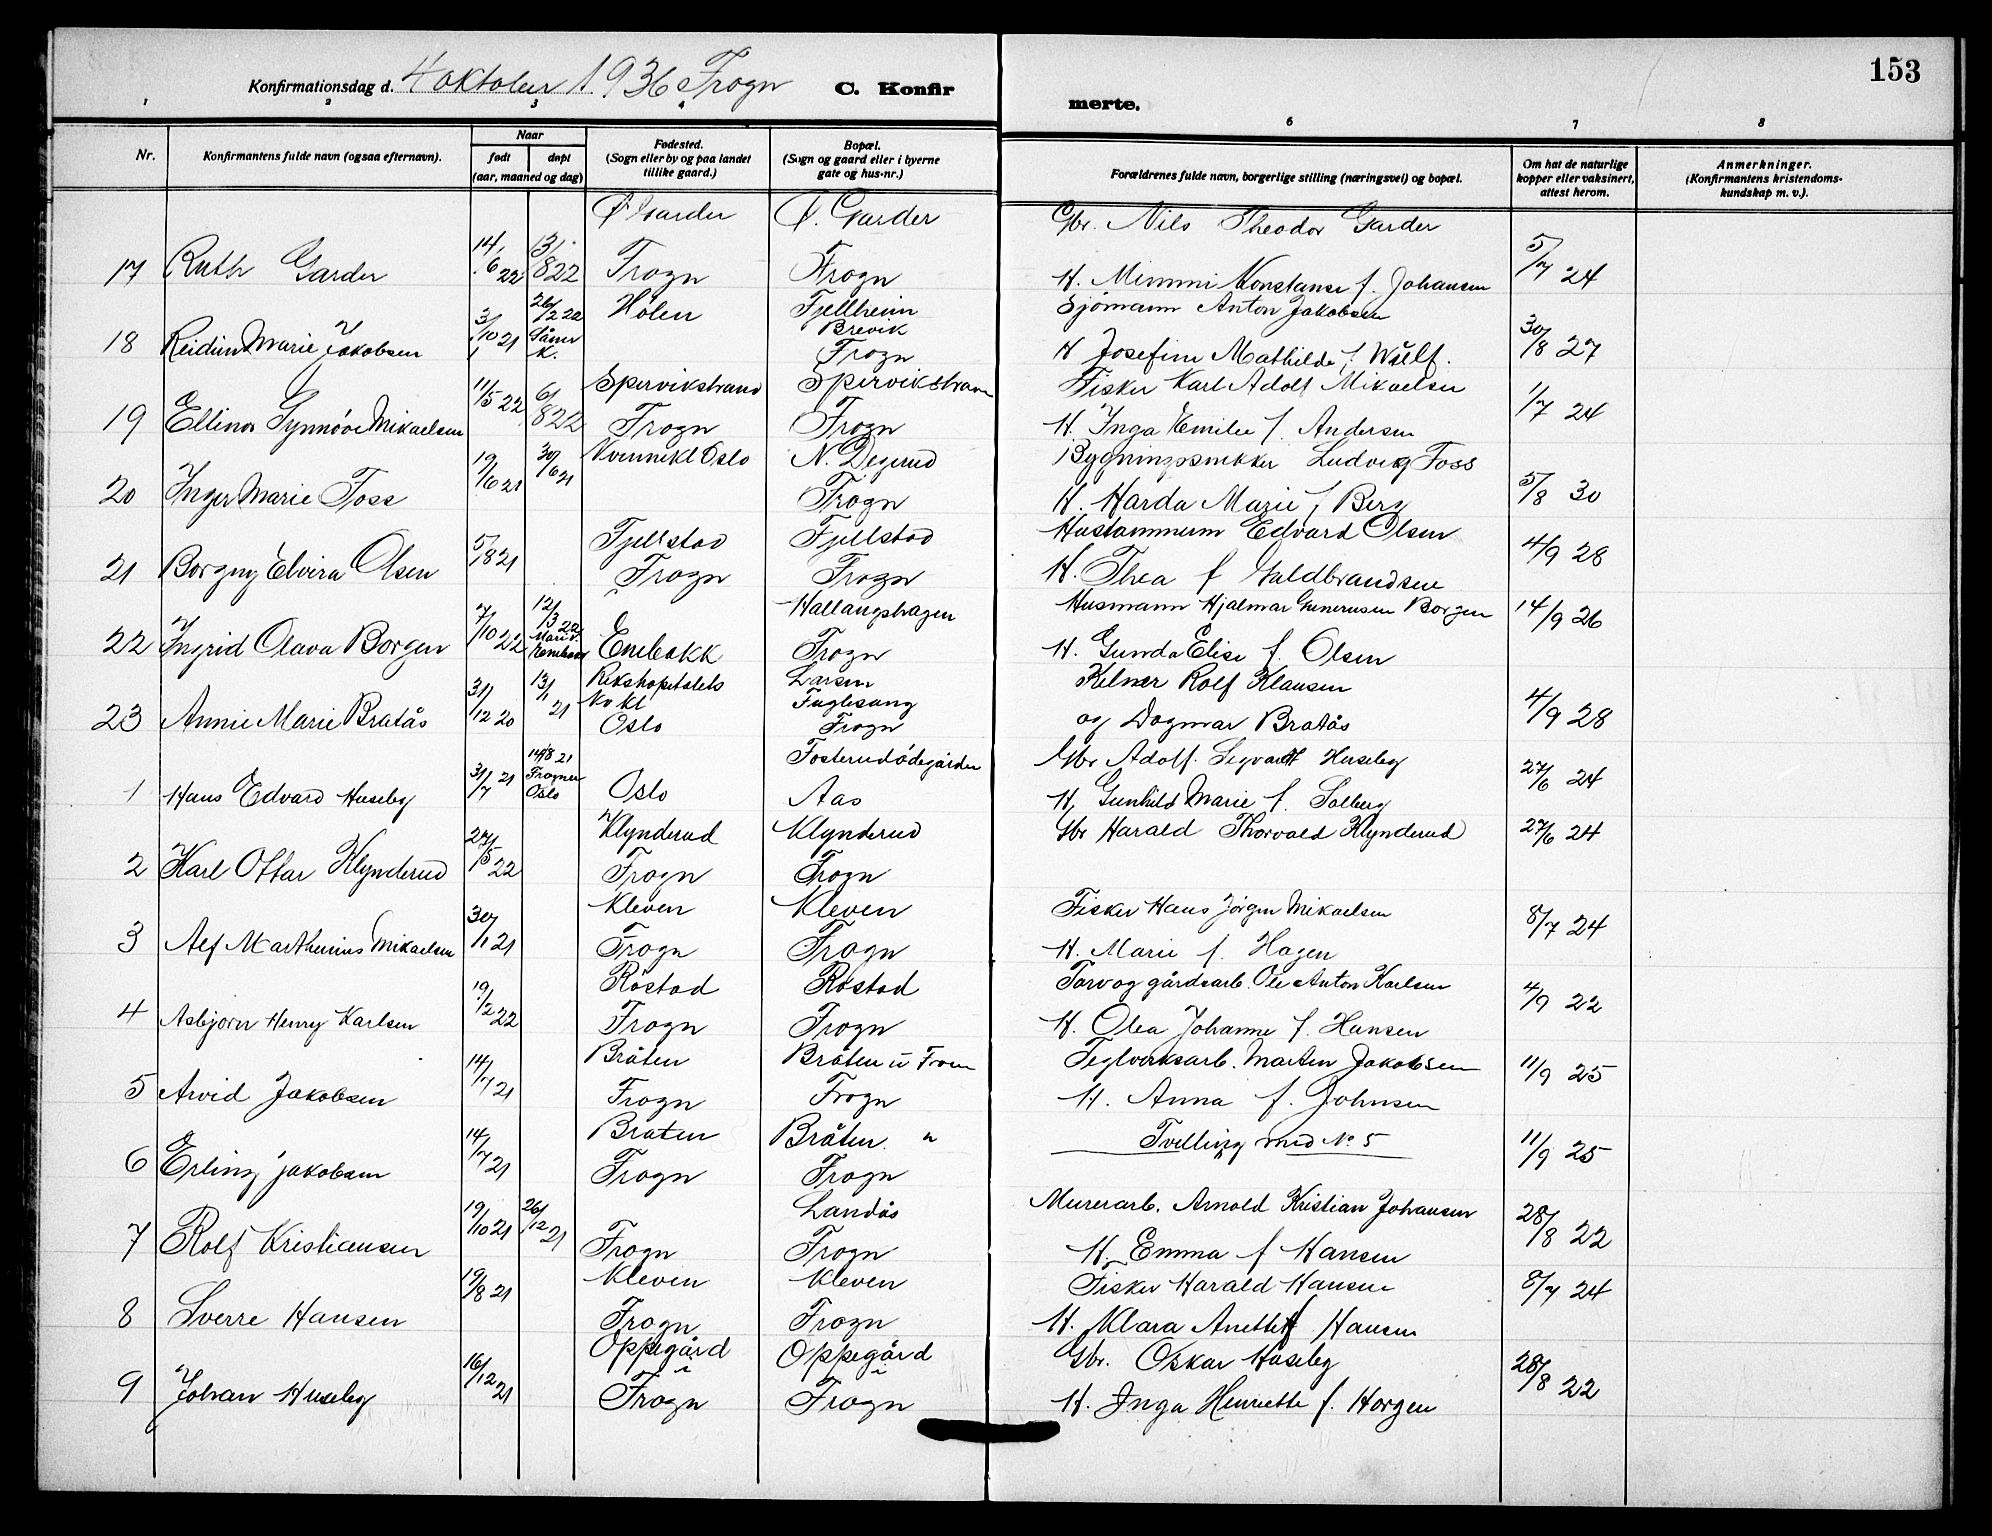 153
Konfirmationsdag d. 4 oktober 1936 Frogn C. Konfir merte.
1 2 3 4 6 7 8
Nr. Konfirmantens fulde navn (ogsaa efternavn). Naar født døpt (aar, maaned og dag) Fødested. (Sogn eller by og paa landet tillike gaard.) Bopæl. (Sogn og gaard eller i byerne gate og hus-nr.) Forældrenes fulde navn, borgerlige stilling (næringsvei) og bopæl. Om hat de naturlige kopper eller vaksinert, attest herom. Anmerkninger. (Konfirmantens kristendomskundskap m. v.).
Ø Garder Ø. Garder Gbr. Nils Theodor Garder
17 Ruth Garder 14/6 22 13/8 22 Frogn Frogn H. Mimmi Konstanse f. Johansen 5/7 24
Hölen Fjellheim Sjömann Anton Jakobsen
Brevik
18 Reidun Marie Jakobsen 3/10 21 26/2 22 Såner K. Frogn H Josefine Mathilde f. Wulf. 30/8 27
Spervikstrand Spervikstrand Fisker Karl Adolf Mikaelsen
19 Ellinor Synnöve Mikaelsen 11/5 22 6/8 22 Frogn Frogn H. Inga Emilie f. Andersen 1/7 24
Kvinnekl Oslo N. Degrud Bygningssnekker Ludvig Foss
20 Inger Marie Foss 19/6 21 30/6 21 Frogn H. Harda Marie f Berg 5/8 30
Fjellstad Fjellstad Hustømmerm Edvard Olsen
21 Borgny Elvira Olsen 5/8 21 Frogn Frogn H. Thea f Guldbrandsen 4/9 28
Hallangshagen Husmann Hjalmar Gunerusen Borgen 14/9 26
22 Ingrid Olava Borgen 7/10 22 12/3 22 Mari k. Enebakk Enebakk Frogn H. Gunda Elise f. Olsen
Rikshopitalets Larsen Kelner Rolf Klausen
Kv kl Fuglesang
23 Annie Marie Bratås 31/12 20 13/1 21 Oslo Frogn og Dagmar Bratås 4/9 28
Fosterudödegården Gbr Adolf Segvart Huseby
1 Hans Edvard Huseby 31/7 21 14/8 21 Frogner Oslo Oslo Aas H, Gunhild Marie f. Solberg 27/6 24
Klynderud Klynderud Gbr Harald Thorvald Klynderud 27/6 24
2 Karl Ottar Klynderud 27/5 22 Frogn Frogn
Kleven Kleven Fisker Hans Jörgen Mikaelsen
3 Alf Marthinius Mikaelsen 30/1 21 Frogn Frogn H. Marie f. Hagen 8/7 24
Röstad Röstad Torv og gårdsarb. Ole Anton Karlsen
4 Asbjorn Henry Karlsen 19/2 22 Frogn Frogn H. Olea Johanne f. Hansen 4/9 22
Bråten Bråten u Froen Teglverksarb. Marten Jakobsen
5 Arvid Jakobsen 14/7 21 Frogn Frogn H. Anna f. Johnsen 11/9 25
Braten Bråten. "
6 Erling Jakobsen 14/7 21 Frogn Frogn Tvilling med No 5 11/9 25
Landås Murerarb. Arnold Kristian Johansen
7 Rolf Kristiansen 19/10 21 26/12 21 Frogn Frogn H. Emma f Hansen 28/8 22
Kleven Kleven Fisker Harald Hansen 8/7 24
8 Sverre Hansen 19/8 21 Frogn Frogn H. Klara Anette f Hansen
Oppegård i Oppegård i Gbr. Oskar Huseby
9 Johan Huseby 16/12 21 Frogn Frogn H. Inga Henriette f. Horgen 28/8 22